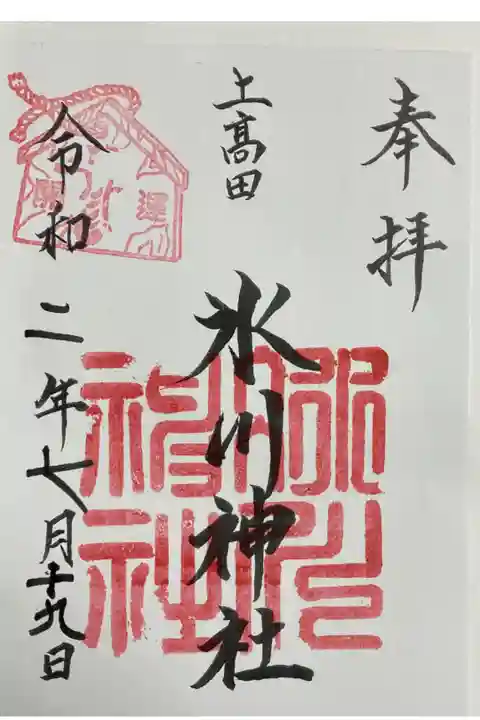 奉拝
上高田
氷川神社
令和二年七月十九日
開運
氷川神社